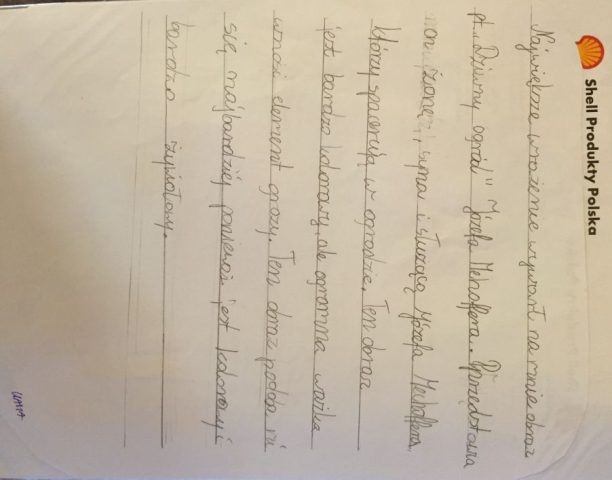 Shell Produkty Polska
Największe wrażenie wywarł na mnie obraz
pt. „Dziwny ogród" Józefa Mehoffera. Przedstawia
on żonę, syna i służącą Józefa Mehoffera,
którzy spacerują w ogrodzie. Ten obraz
jest bardzo kolorowy, ale ogromna ważka
wnosi element grozy. Ten obraz podoba mi
się najbardziej ponieważ jest kolorowy i
bardzo żywiołowy.